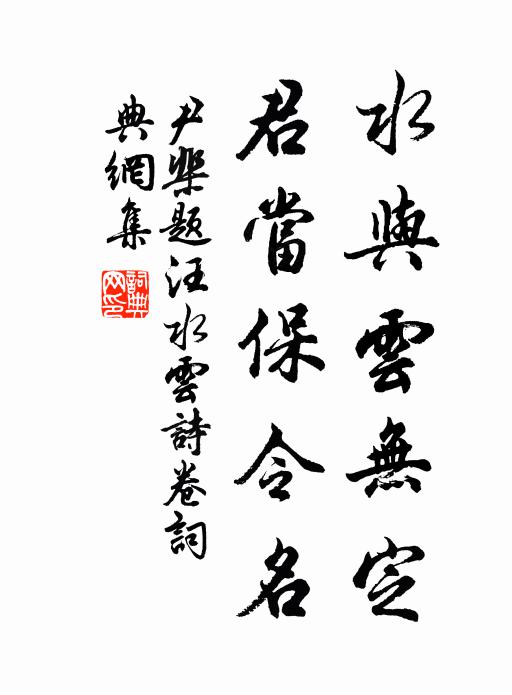 水與雲無定
君當保令名
尹壄題汪水雲詩卷詞
典網集
詞典網印